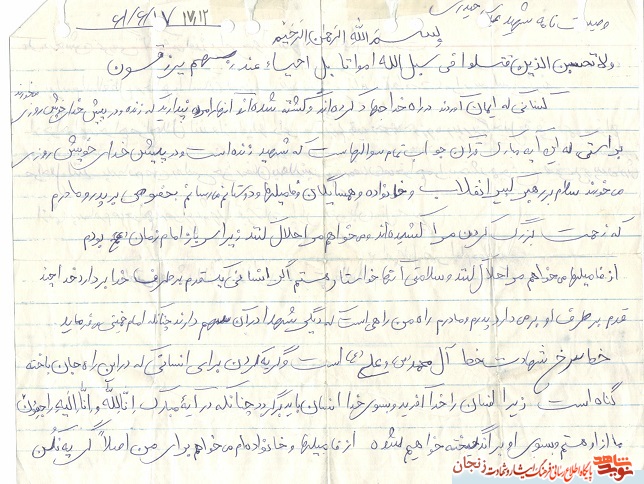 وصیت نامه شهید عباس حیدری
۶۱/۶/۱۷
بسم الله الرحمن الرحیم
ولا تحسبن الذین قتلوا فی سبیل الله امواتا بل احیاء عند ربهم یرزقون
کسانی که ایمان آوردند در راه خدا جهاد کرده‌اند و کشته شده‌اند آنها را مرده نپندارید که زنده و در پیش خدای خویش روزی میخورند
براستی که این آیه مبارک قرآن جواب تمام سوالهاست که شهید زنده است و در پیش خدای خویش روزی
می‌خورند سلام بر رهبر کبیر انقلاب و خانواده و همسایگان و فامیلها و دوستانم میرسانم بخصوص بر پدر و مادرم
که زحمت بزرگ کردن مرا کشیده‌اند و میخواهم مرا حلال کنند زیرا سرباز امام زمان (عج) بودم
از فامیلها میخواهم مرا حلال کنند و سلامتی آنها خواستار هستم اگر انسانی یک قدم به طرف خدا بردارد خدا چند
قدم بر طرف او برمی‌دارد پدرم و مادرم راه من راهی است که دیگر شهدا در آن سهم دارند چنانکه امام خمینی میفرماید
خط سرخ شهادت خط آل محمد (ص) و علی (ع) است و گریه کردن برای انسانی که در این راه جان باخته
گناه است زیرا انسان را خدا آفریده و بسوی خدا انسان باید برگردد چنانکه در آیهٔ مبارک انا لله و انا الیه راجعون
ما از او هستم و بسوی او برانگیخته خواهیم شد از فامیلها و خانواده‌ام می‌خواهم برای من اصلاً گریه نکن
نوید شاهد
پایگاه اطلاع رسانی فرهنگ ایثار و شهادت زنجان